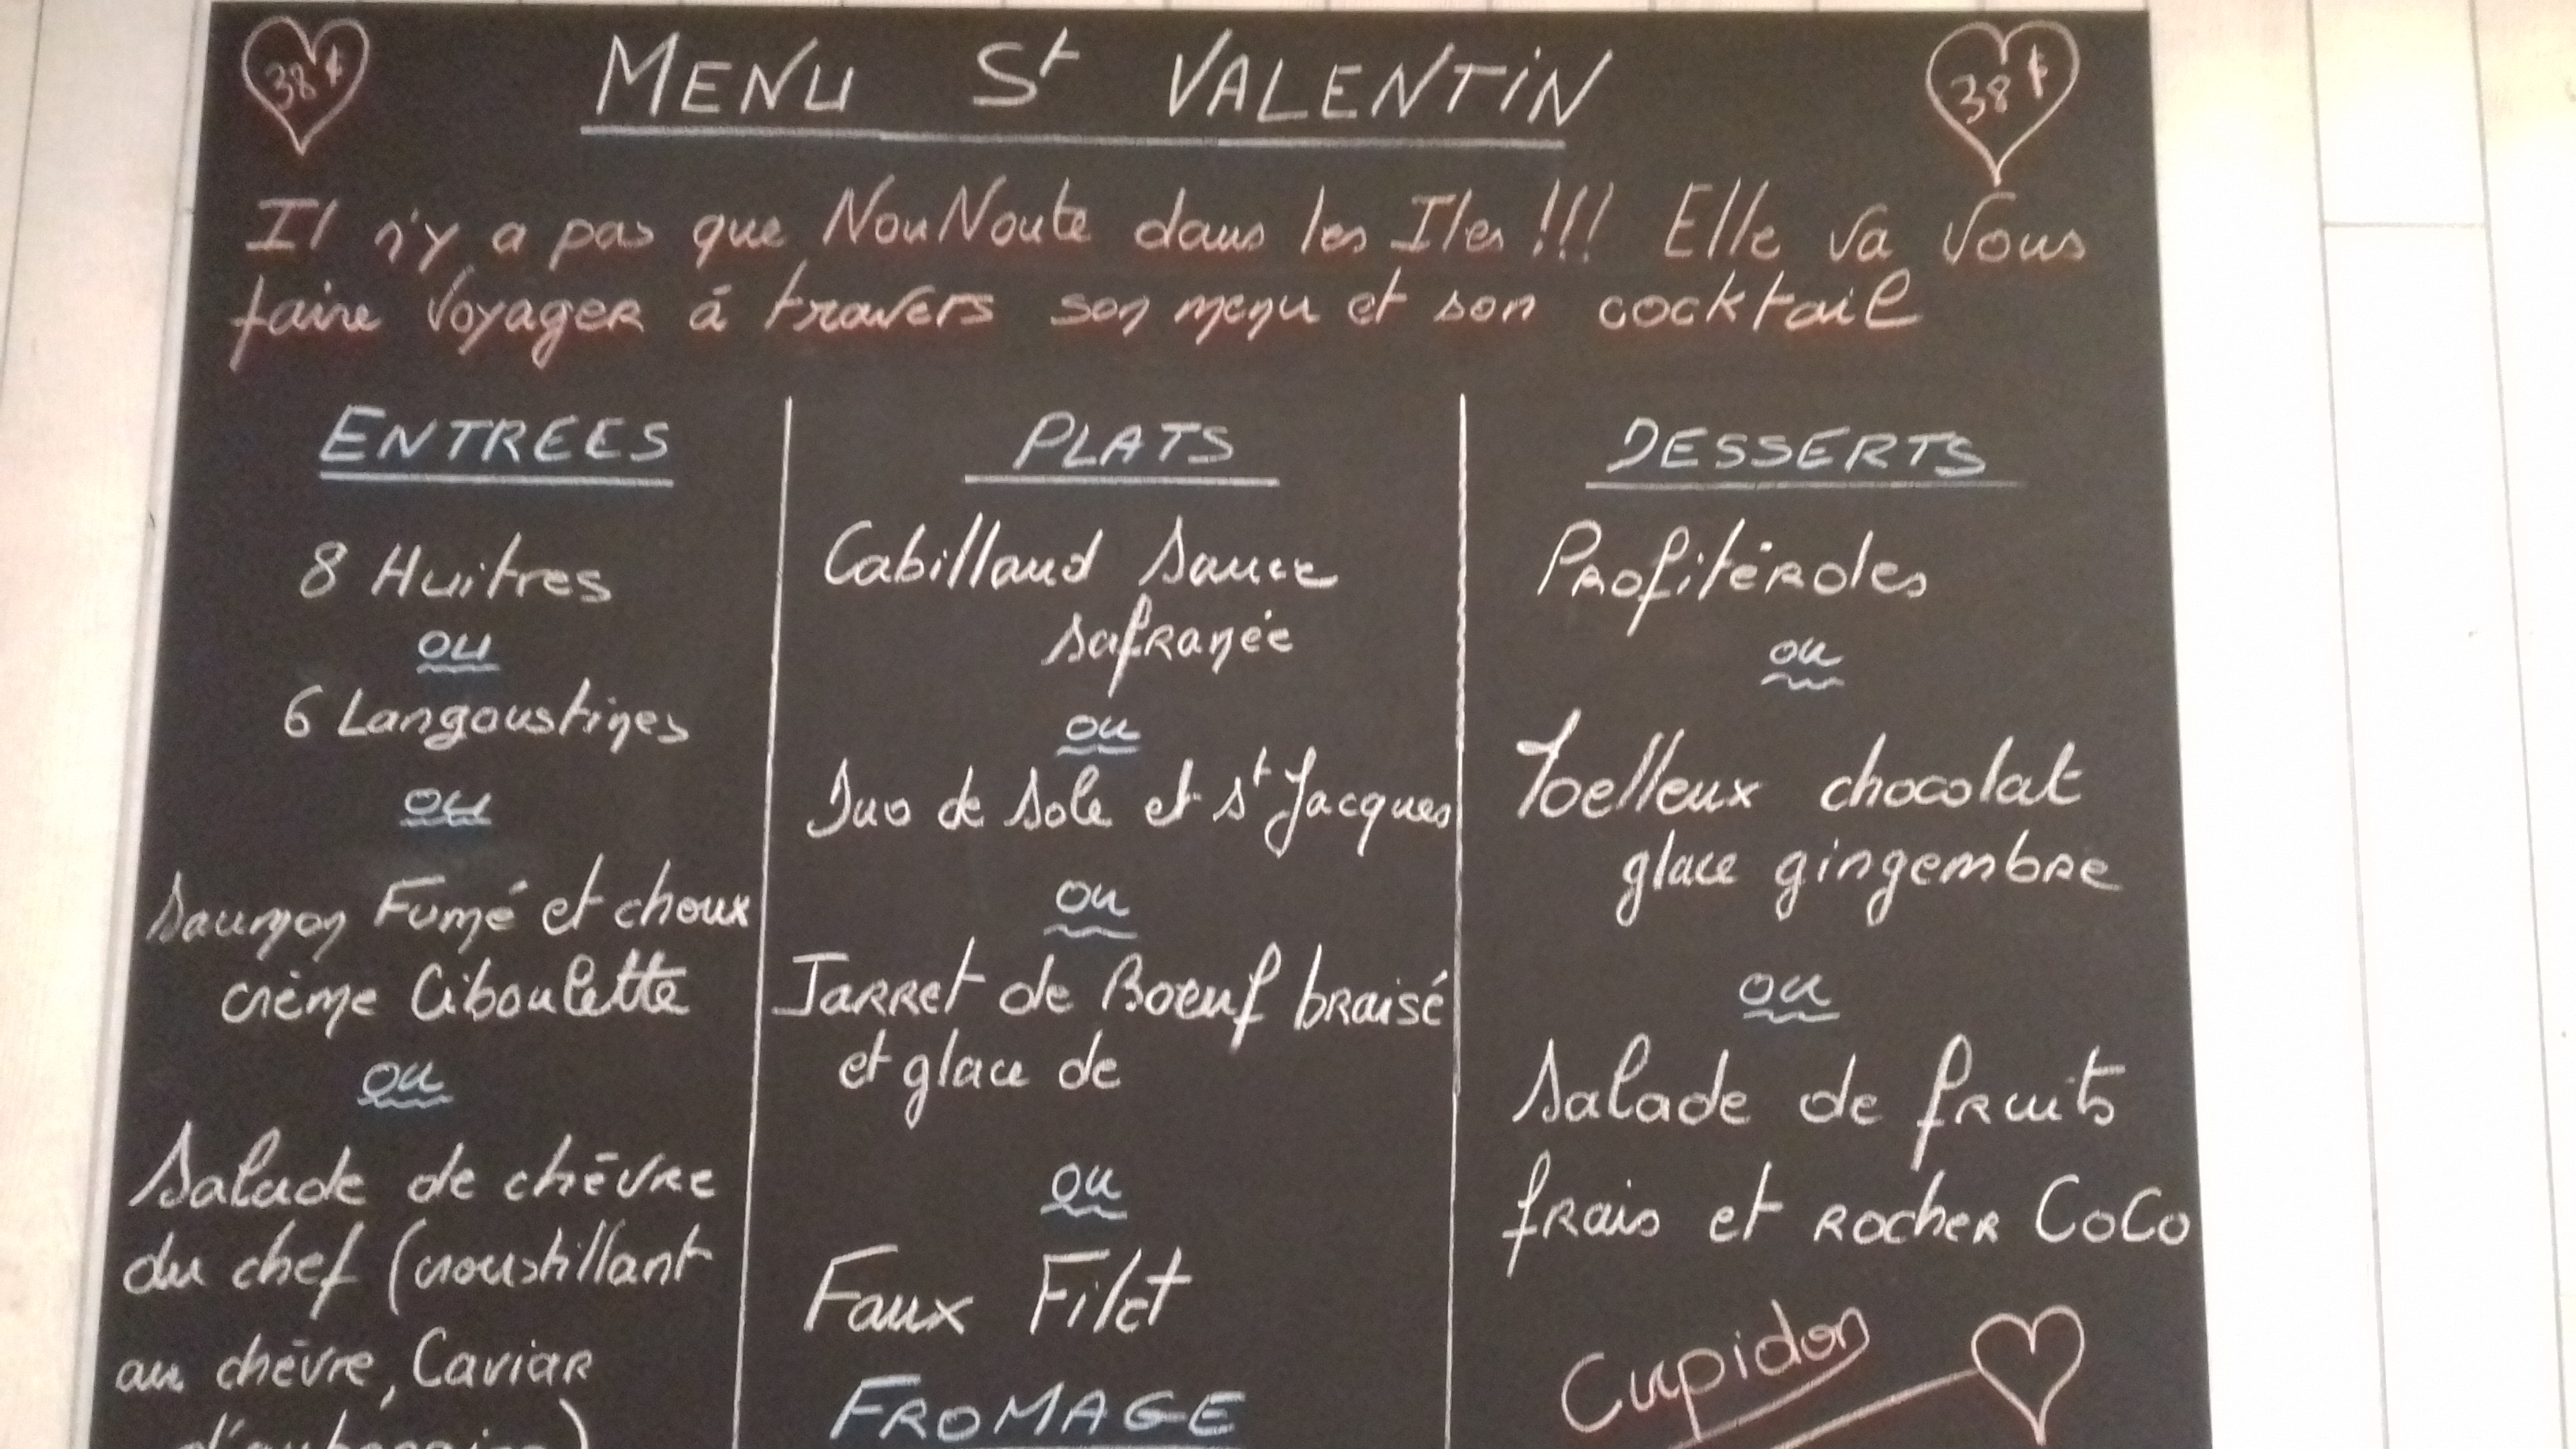 38 €
MENU St VALENTIN
38 €
Il n'y a pas que NouNoute dans les Iles !!! Elle va vous
faire voyager à travers son menu et son cocktail
ENTREES
8 Huitres
ou
6 Langoustines
ou
Saumon Fumé et choux
crème Ciboulette
ou
Salade de chèvre
du chef (croustillant
au chèvre, Caviar
d'aubergine)
PLATS
Cabillaud sauce
safranée
ou
Duo de sole et St Jacques
ou
Jarret de Boeuf braisé
et glace de
ou
Faux Filet
FROMAGE
DESSERTS
Profitéroles
ou
Moelleux chocolat
glace gingembre
ou
Salade de fruits
frais et rocher CoCo
Cupidon